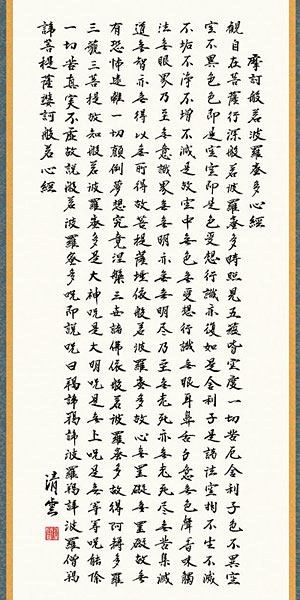 摩訶般若波羅蜜多心經
觀自在菩薩行深般若波羅蜜多時照見五蘊皆空度一切苦厄舎利子色不異空
空不異色色即是空空即是色受想行識亦復如是舎利子是諸法空相不生不滅
不垢不浄不増不減是故空中無色無受想行識無眼耳鼻舌身意無色聲香味觸
法無眼界乃至無意識界無無明亦無無明尽乃至無老死亦無老死尽無苦集滅
道無智亦無得以無所得故菩提薩埵依般若波羅蜜多故心無罣礙無罣礙故無
有恐怖遠離一切顛倒夢想究竟涅槃三世諸佛依般若波羅蜜多故得阿耨多羅
三藐三菩提故知般若波羅蜜多是大神呪是大明呪是無上呪是無等等呪能除
一切苦真実不虚故説般若波羅蜜多呪即説呪曰羯諦羯諦波羅羯諦波羅僧羯
諦菩提薩婆訶般若心經
清雲